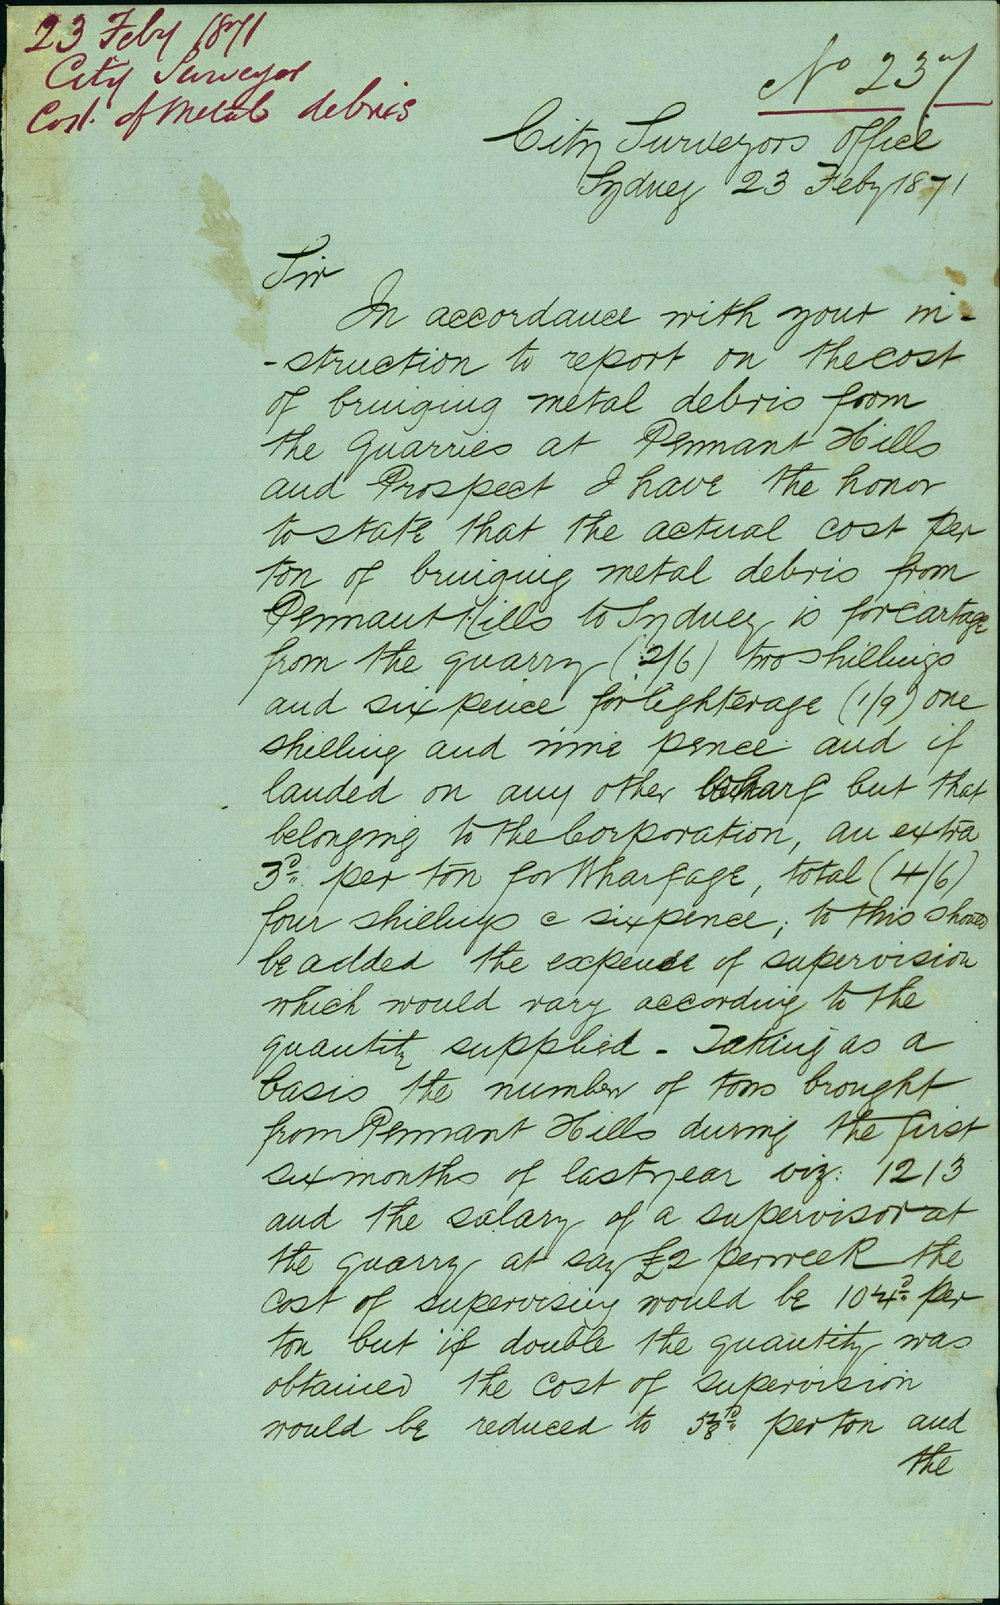 23 Feby 1871
City Surveyor
Cost. of Metal debris
No 237
City Surveyors Office
Sydney 23 Feby 1871
Sir
In accordance with your in-
-struction to report on the cost
of bringing metal debris from
the Quarries at Pennant Hills
and Prospect I have the honor
to state that the actual cost per
ton of bringing metal debris from
Pennant Hills to Sydney is for cartage
from the quarry (2/6) two shillings
and six pence for lighterage (1/9) one
shilling and nine pence and if
landed on any other Wharf but that
belonging to the Corporation, an extra
3D per ton for Wharfage, total (4/6)
four shillings & sixpence; to this should
be added the expense of supervision
which would vary according to the
quantity supplied - Taking as a
basis the number of tons brought
from Pennant Hills during the first
six months of last year viz: 1213
and the salary of a supervisor at
the quarry at say £2 per week the
cost of supervising would be per
ton but if double the quantity was
obtained the cost of supervision
would be reduced to per ton and
the